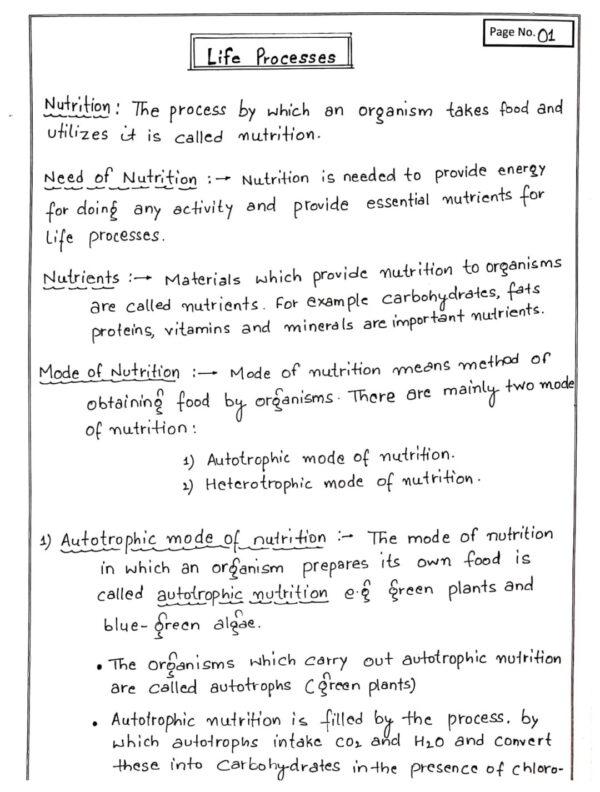 Page No. 01
Life Processes
Nutrition: The process by which an organism takes food and
utilizes it is called nutrition.
Need of Nutrition :→ Nutrition is needed to provide energy
for doing any activity and provide essential nutrients for
Life processes.
Nutrients :→ Materials which provide nutrition to organisms
are called nutrients. For example carbohydrates, fats
proteins, vitamins and minerals are important nutrients.
Mode of Nutrition :→ Mode of nutrition means method of
obtaining food by organisms. There are mainly two mode
of nutrition:
1) Autotrophic mode of nutrition.
2) Heterotrophic mode of nutrition.
1) Autotrophic mode of nutrition :→ The mode of nutrition
in which an organism prepares its own food is
called autotrophic nutrition e.g green plants and
blue-green algae.
• The organisms which carry out autotrophic nutrition
are called autotrophs (green plants)
• Autotrophic nutrition is filled by the process, by
which autotrophs intake CO₂ and H₂O and convert
these into carbohydrates in the presence of chloro-